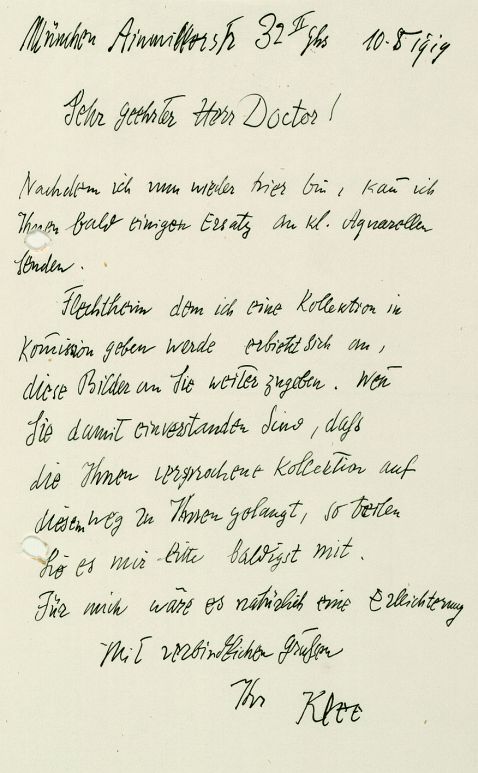 München Ainmillerstr 32 II ghs 10. 8 1919
Sehr geehrter Herr Doctor!
Nachdem ich nun wieder hier bin, kan̄ ich
Ihnen bald einigen Ersatz an kl. Aquarellen
senden.
Flechtheim dem ich eine Kollektion in
Kom̄ission geben werde erbietet sich an,
diese Bilder an Sie weiter zugeben. Wen̄
Sie damit einverstanden sind, daſs
die Ihnen versprochene Kollektion auf
diesem weg zu Ihnen gelangt, so teilen
Sie es mir bitte baldigst mit.
Für mich wäre es natürlich eine Erleichterung
Mit verbindlichen Grüßen
Ihr Klee